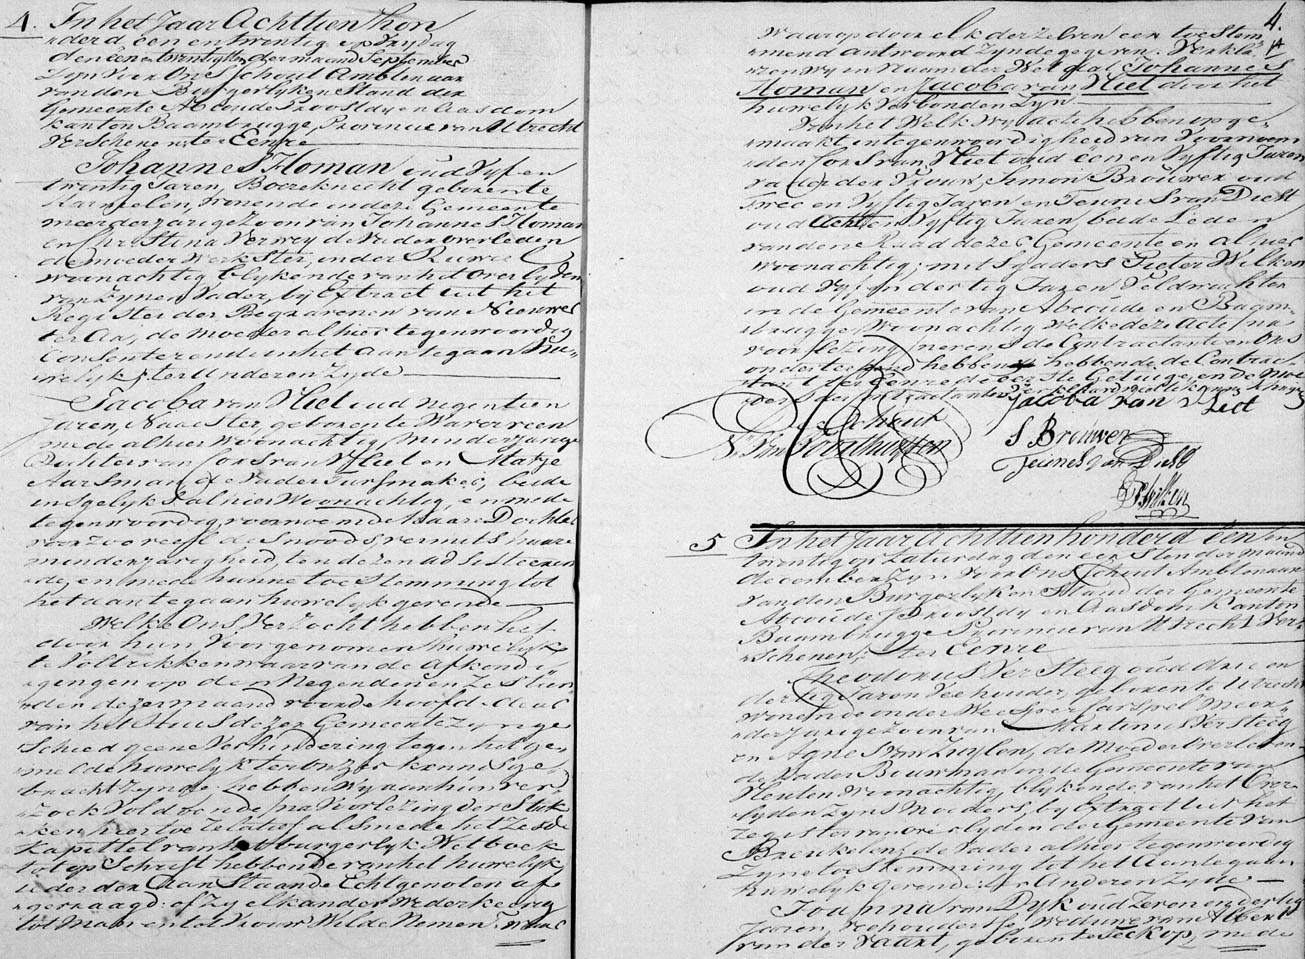 4. In het Jaar Achttien hon
derd een en twintig op Vrydag
den één en twintigsten der maand September
Zyn voor Ons Schout Ambtenaar
van den Burgerlyken Stand der
Gemeente Abcoude Proostdy en Aasdom
Kanton Baambrugge, Provincie van Utrecht
verschenen ter Eenre
Johannes Homan oud Vyf en
twintig Jaren, Boereknecht geboren te
Kamelen, wonende in deze Gemeente
meerderjarige Zoon van Johannes Homan
en Christina Verwey de Vader overleden
de moeder Werkster onder Ruwiel
woonachtig blykende van het overlyden
van zynen Vader, by Extract uit het
Register der Begravenen van Nieuwer
ter Aa, de moeder alhier tegenwoordig
Consenterende in het aantegaan Hu=
welyk, ter Anderen Zyde
Jacoba van Vliet oud negentien
Jaren, Naaister, geboren te Waverveen
mede alhier woonachtig, minderjarige
Dochter van Cors van Vliet en Matje
Aarsman de Vader Turfmaker, beide
insgelyks alhier Woonachtig, en mede
tegenwoordig, voornoemde haare Dochter
voor zo veel de noods vermits haare
minderjarigheid, ten dezen adsisteeren
de, en mede hunne toestemming tot
het aantegaan huwelyk gevende
Welke Ons Verzocht hebben het
door hun Voorgenomen huwelyk
te Voltrekken waarvan de Afkondi
gingen op den Negenden en Zestien
den dezer maand voor de hoofddeur
van het Huis dezer Gemeente zyn ge
schied geene Verhindering tegen het ge
melde huwelyk ter onzer kennis ge
bragt zynde, hebben Wy aan hun ver
zoek Voldoende, na Voorlezing der Stuk
ken hier toe relatif als mede het Zesde
Kapittel van het burgerlyk Wetboek
tot op Schrift hebbende van het huwelyk
ieder der Aanstaande Echtgenoten af
gevraagd: of Zy elkander Wederkeerig
tot Man en tot Vrouw Wilde Nemen
4.
Waarop door elk derzelven een toestem
mend antwoord Zynde gegeven. Verkla
ren Wy in Naam der Wet dat Johannes
Homan en Jacoba van Vliet door het
huwelyk Verbonden Zyn
Van het Welk Wy acte hebben opge
maakt in tegenwoordigheid van Voornoem
den Cors van Vliet oud een en Vyftig Jaren
Vader der Vrouw, Simon Brouwer oud
twee en Vyftig Jaren en Teunis van Diest
oud Acht en Vyftig Jaren, beide Leden
van den Raad dezer Gemeente en alhier
woonachtig; mitsgaders Pieter Wilken
oud Vyf en dertig Jaren Veldwachter
in de Gemeente van Abcoude en Baam
brugge Woonachtig welke deze Acte, na
voorlezing, nevens de Contractant en Ons
onderteekend hebben, hebbende de Contrac
Jacoba van Vliet
S Brouwer
Teunes van Diest
P Wilken
5 In het Jaar Achttienhonderd één en
twintig op Zaturdag den eersten der maand
December Zyn voor Ons Schout Ambtenaar
van den Burgerlyken Stand der Gemeente
Abcoude Proostdy en Aasdom Kanton
Baambrugge Provincie van Utrecht Ver
schenen, ter Eenre
Theodorus Versteeg oud drie en
dertig Jaren Veehouder, geboren te Utrecht
Wonende onder Weesper Carspel Meer
derjarige Zoon van Martinus Versteeg
en Agnes van Zuylen, de Moeder overleden
de Vader Bouwman in de Gemeente van
Vleuten Woonachtig, blykende van het Over
lyden Zyns Moeders, by Extract uit het
register van overlyden der Gemeente van
Breukelen, de Vader alhier tegenwoordig
Zyne toestemming tot het Aantegaan
huwelyk gevende, ter Anderen Zyde
Joanna van Dyk oud Zeven en dertig
Jaren, veehoudster Weduwe van Albert
van der Vaart, geboren te Teckop, mede